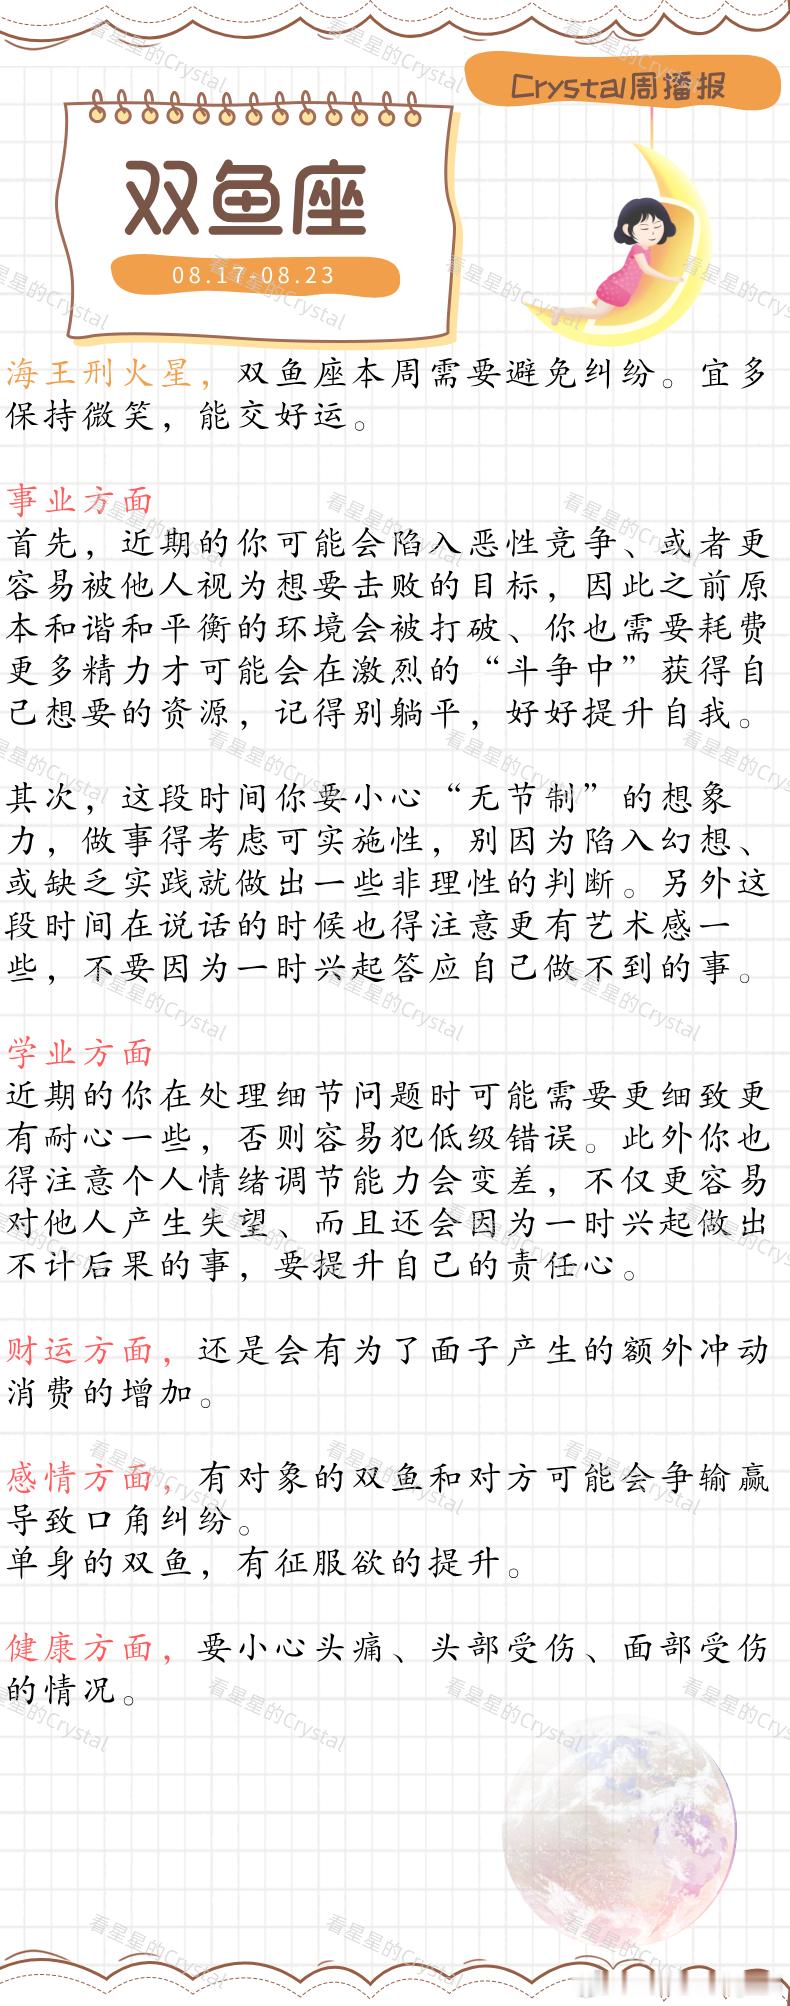 Crystal周播报
双鱼座
08.17-08.23
海王刑火星，双鱼座本周需要避免纠纷。宜多
保持微笑，能交好运。
事业方面
首先，近期的你可能会陷入恶性竞争、或者更
容易被他人视为想要击败的目标，因此之前原
本和谐和平衡的环境会被打破、你也需要耗费
更多精力才可能会在激烈的“斗争中”获得自
己想要的资源，记得别躺平，好好提升自我。
其次，这段时间你要小心“无节制”的想象
力，做事得考虑可实施性，别因为陷入幻想、
或缺乏实践就做出一些非理性的判断。另外这
段时间在说话的时候也得注意更有艺术感一
些，不要因为一时兴起答应自己做不到的事。
学业方面
近期的你在处理细节问题时可能需要更细致更
有耐心一些，否则容易犯低级错误。此外你也
得注意个人情绪调节能力会变差，不仅更容易
对他人产生失望、而且还会因为一时兴起做出
不计后果的事，要提升自己的责任心。
财运方面，还是会有为了面子产生的额外冲动
消费的增加。
感情方面，有对象的双鱼和对方可能会争输赢
导致口角纠纷。
单身的双鱼，有征服欲的提升。
健康方面，要小心头痛、头部受伤、面部受伤
的情况。
看星星的Crystal